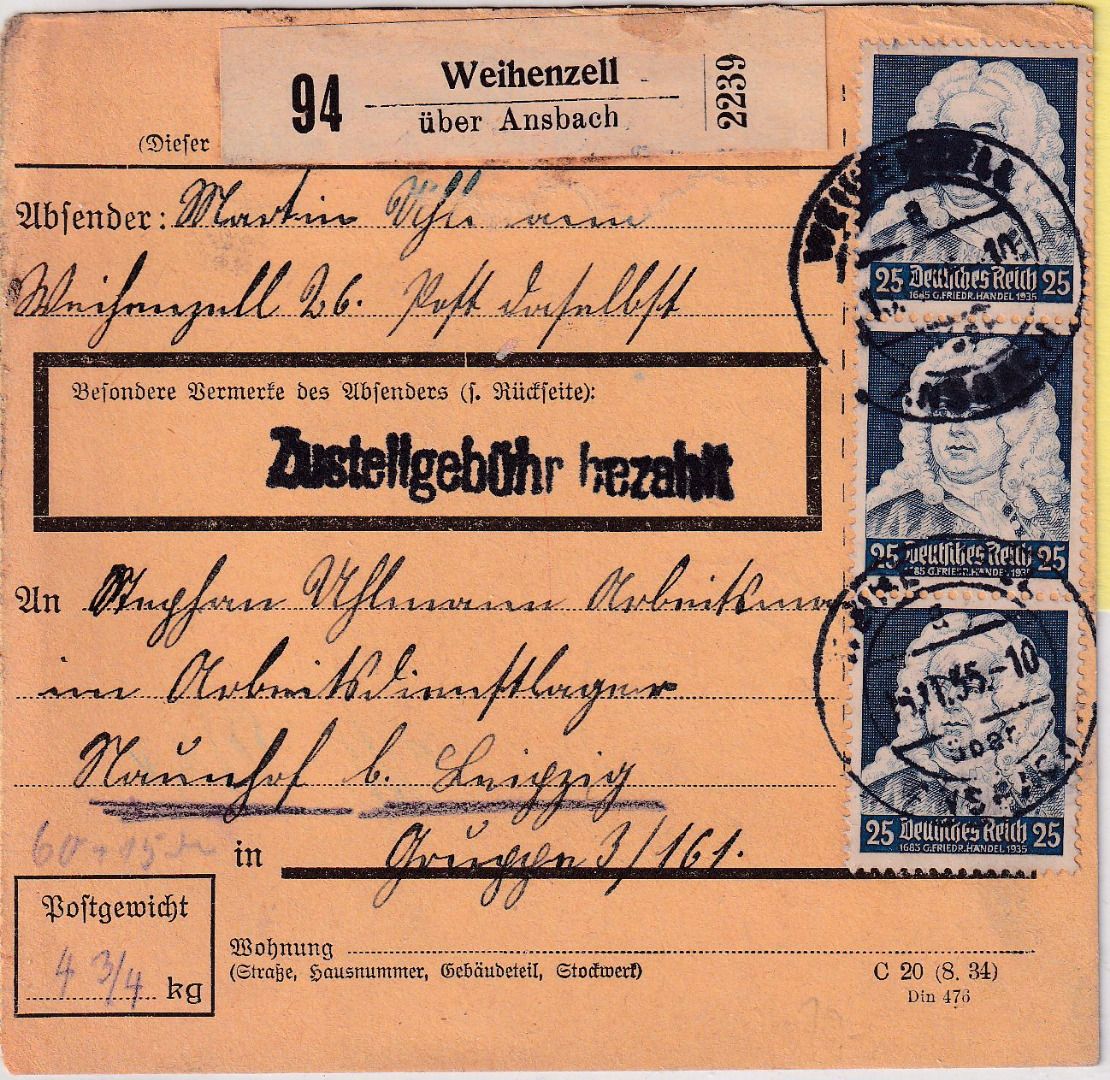 94
Weihenzell
über Ansbach
2239
(Dieser
Absender: Martin Uhlmann
Weihenzell 26. Post daselbst
Besondere Vermerke des Absenders (s. Rückseite):
Zustellgebühr bezahlt
An Stephan Uhlmann Arbeitsma
im Arbeitsdienstlager
Naunhof b. Leipzig
60+15
in Gruppe 3/161.
Postgewicht
4 3/4 kg
Wohnung
(Straße, Hausnummer, Gebäudeteil, Stockwerk)
C 20 (8. 34)
Din 476
25 Deutsches Reich 25
1685 G.FRIEDR.HÄNDEL 1935
25 Deutsches Reich 25
1685 G.FRIEDR.HÄNDEL 1935
25 Deutsches Reich 25
1685 G.FRIEDR.HÄNDEL 1935
WEIHENZELL
a
ANSBACH
a
.11.35.-10
über
ANSBACH